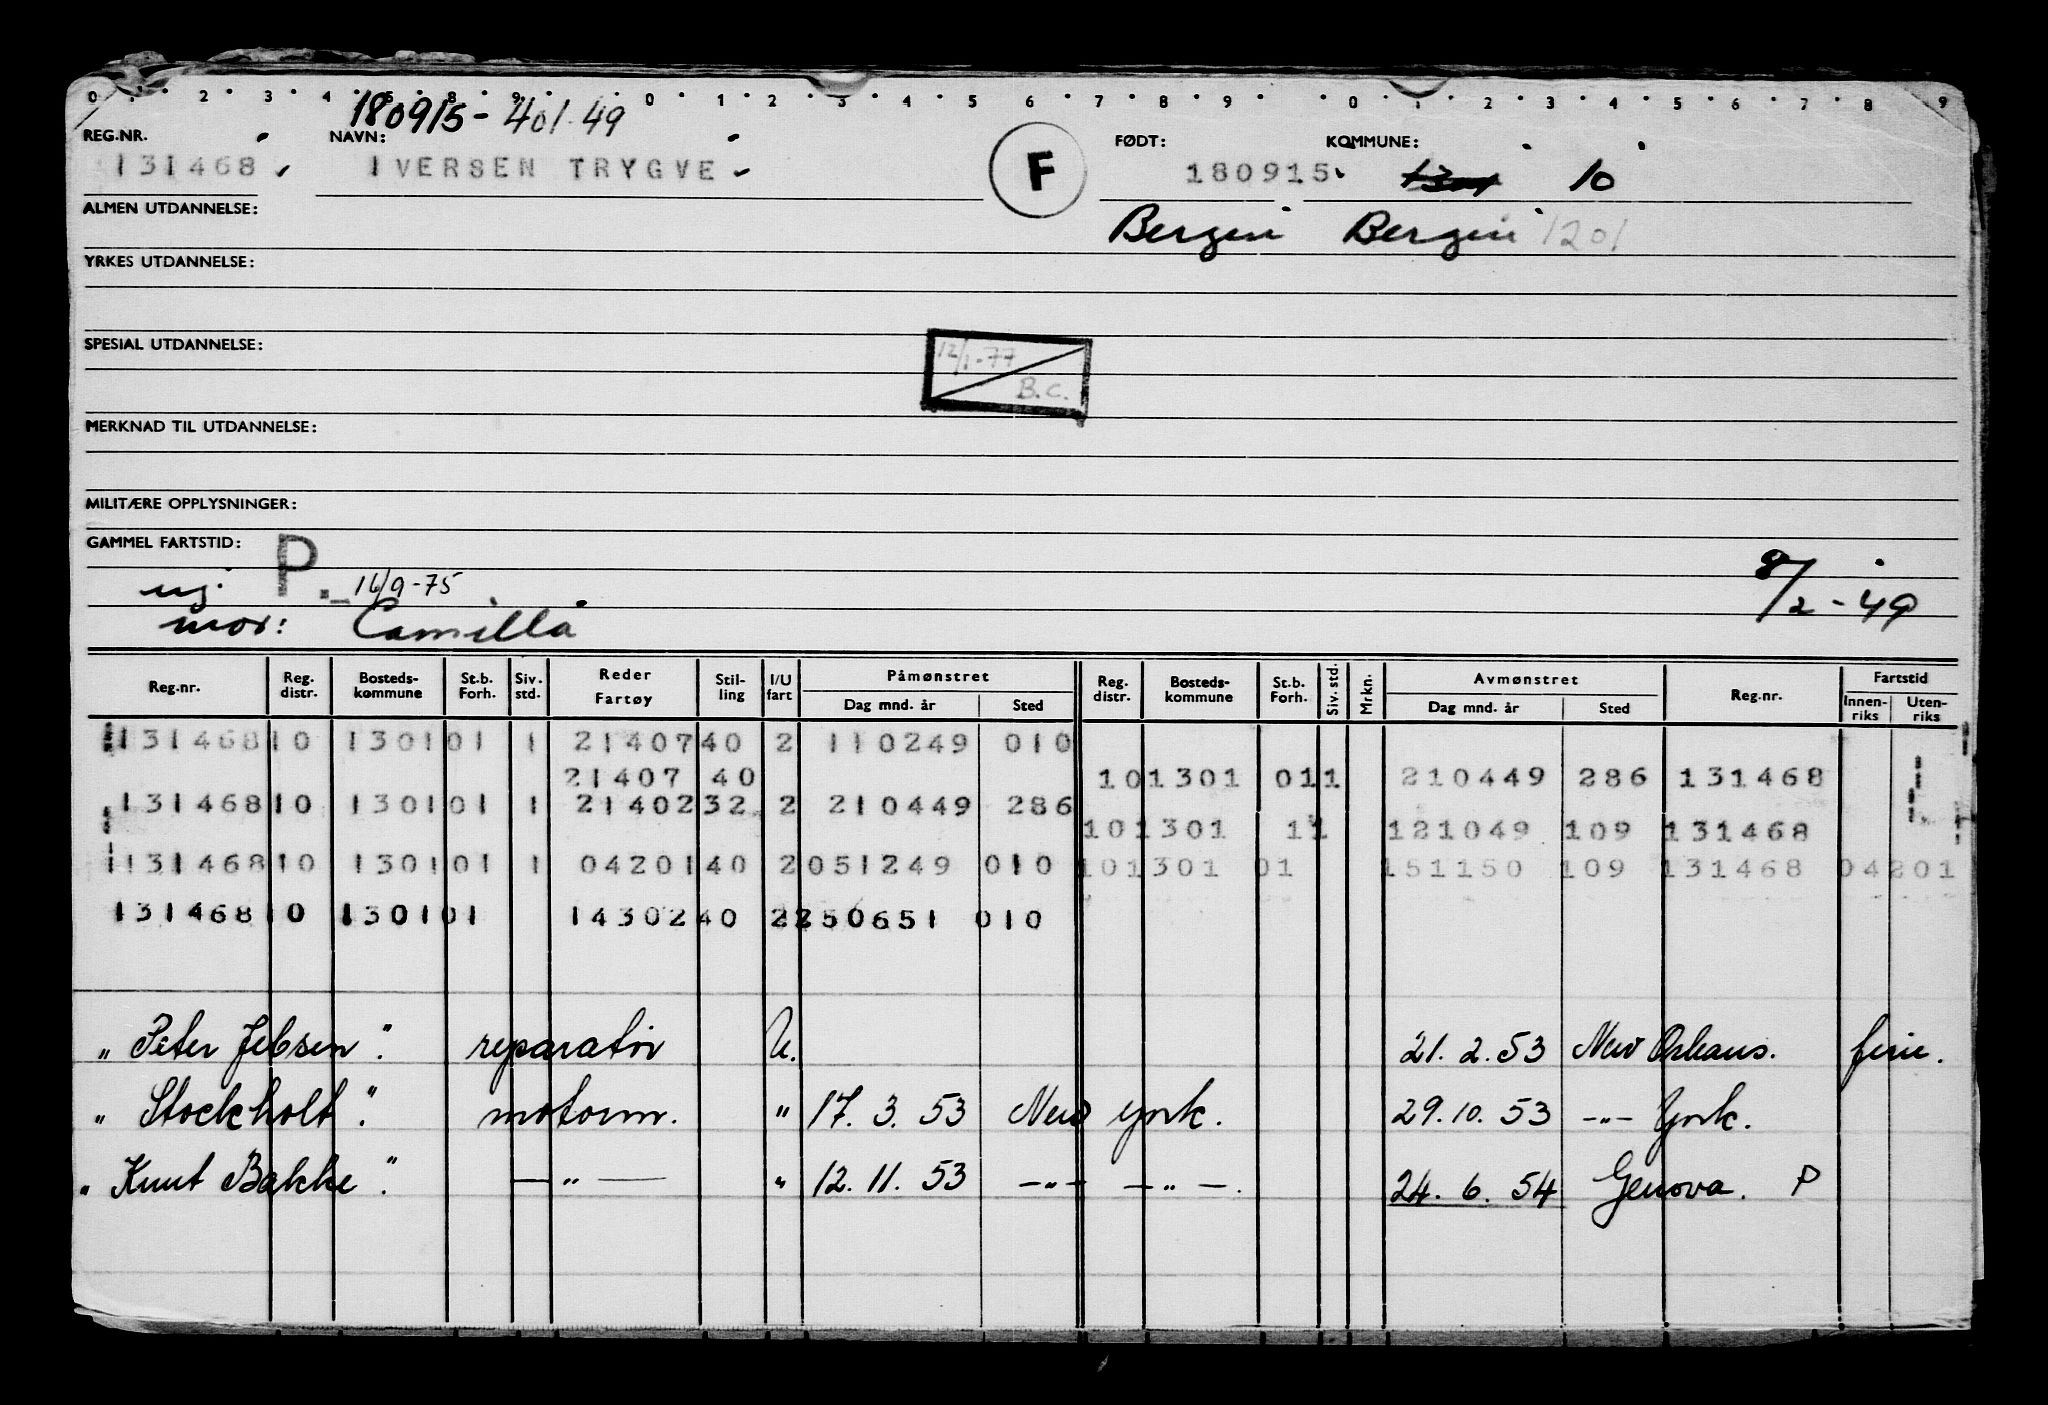 0 2 3 4 5 8 9 0 1 2 3 4 5 6 7 8 9 0 1 2 3 4 5 6 7 8 9
180915-401.49
REG.NR. NAVN: FØDT: KOMMUNE:
131468 IVERSEN TRYGVE F 180915 10
ALMEN UTDANNELSE: Bergen Bergen 1201
YRKES UTDANNELSE:
SPESIAL UTDANNELSE:
12/1-77
B.C.
MERKNAD TIL UTDANNELSE:
MILITÆRE OPPLYSNINGER:
GAMMEL FARTSTID: P.
ug. 16/9-75 8/2-49
mor: Camilla
Reg.nr. Reg. distr. Bosteds-kommune St.b. Forh. Siv. std. Reder Fartøy Stil-ling I/U fart Påmønstret Dag mnd. år Sted Reg. distr. Bosteds-kommune St.b. Forh. Siv. std. Mrkn. Avmønstret Dag mnd. år Sted Reg.nr. Fartstid Innen-riks Uten-riks
131468 10 1301 01 1 21407 40 2 110249 010
21407 40 10 1301 01 1 210449 286 131468
131468 10 1301 01 1 21402 32 2 210449 286
10 1301 11 121049 109 131468
131468 10 1301 01 1 04201 40 2 051249 010 10 1301 01 151150 109 131468 04201
131468 10 1301 01 14302 40 2 250651 010
"Peter Jebsen". reparatör U. 21.2.53 New Orleans. ferie.
"Stockholt". motorm. " 17.3.53 New York. 29.10.53 -"- York.
"Knut Bakke". — " — " 12.11.53 -"- -"-. 24.6.54 Genova. P